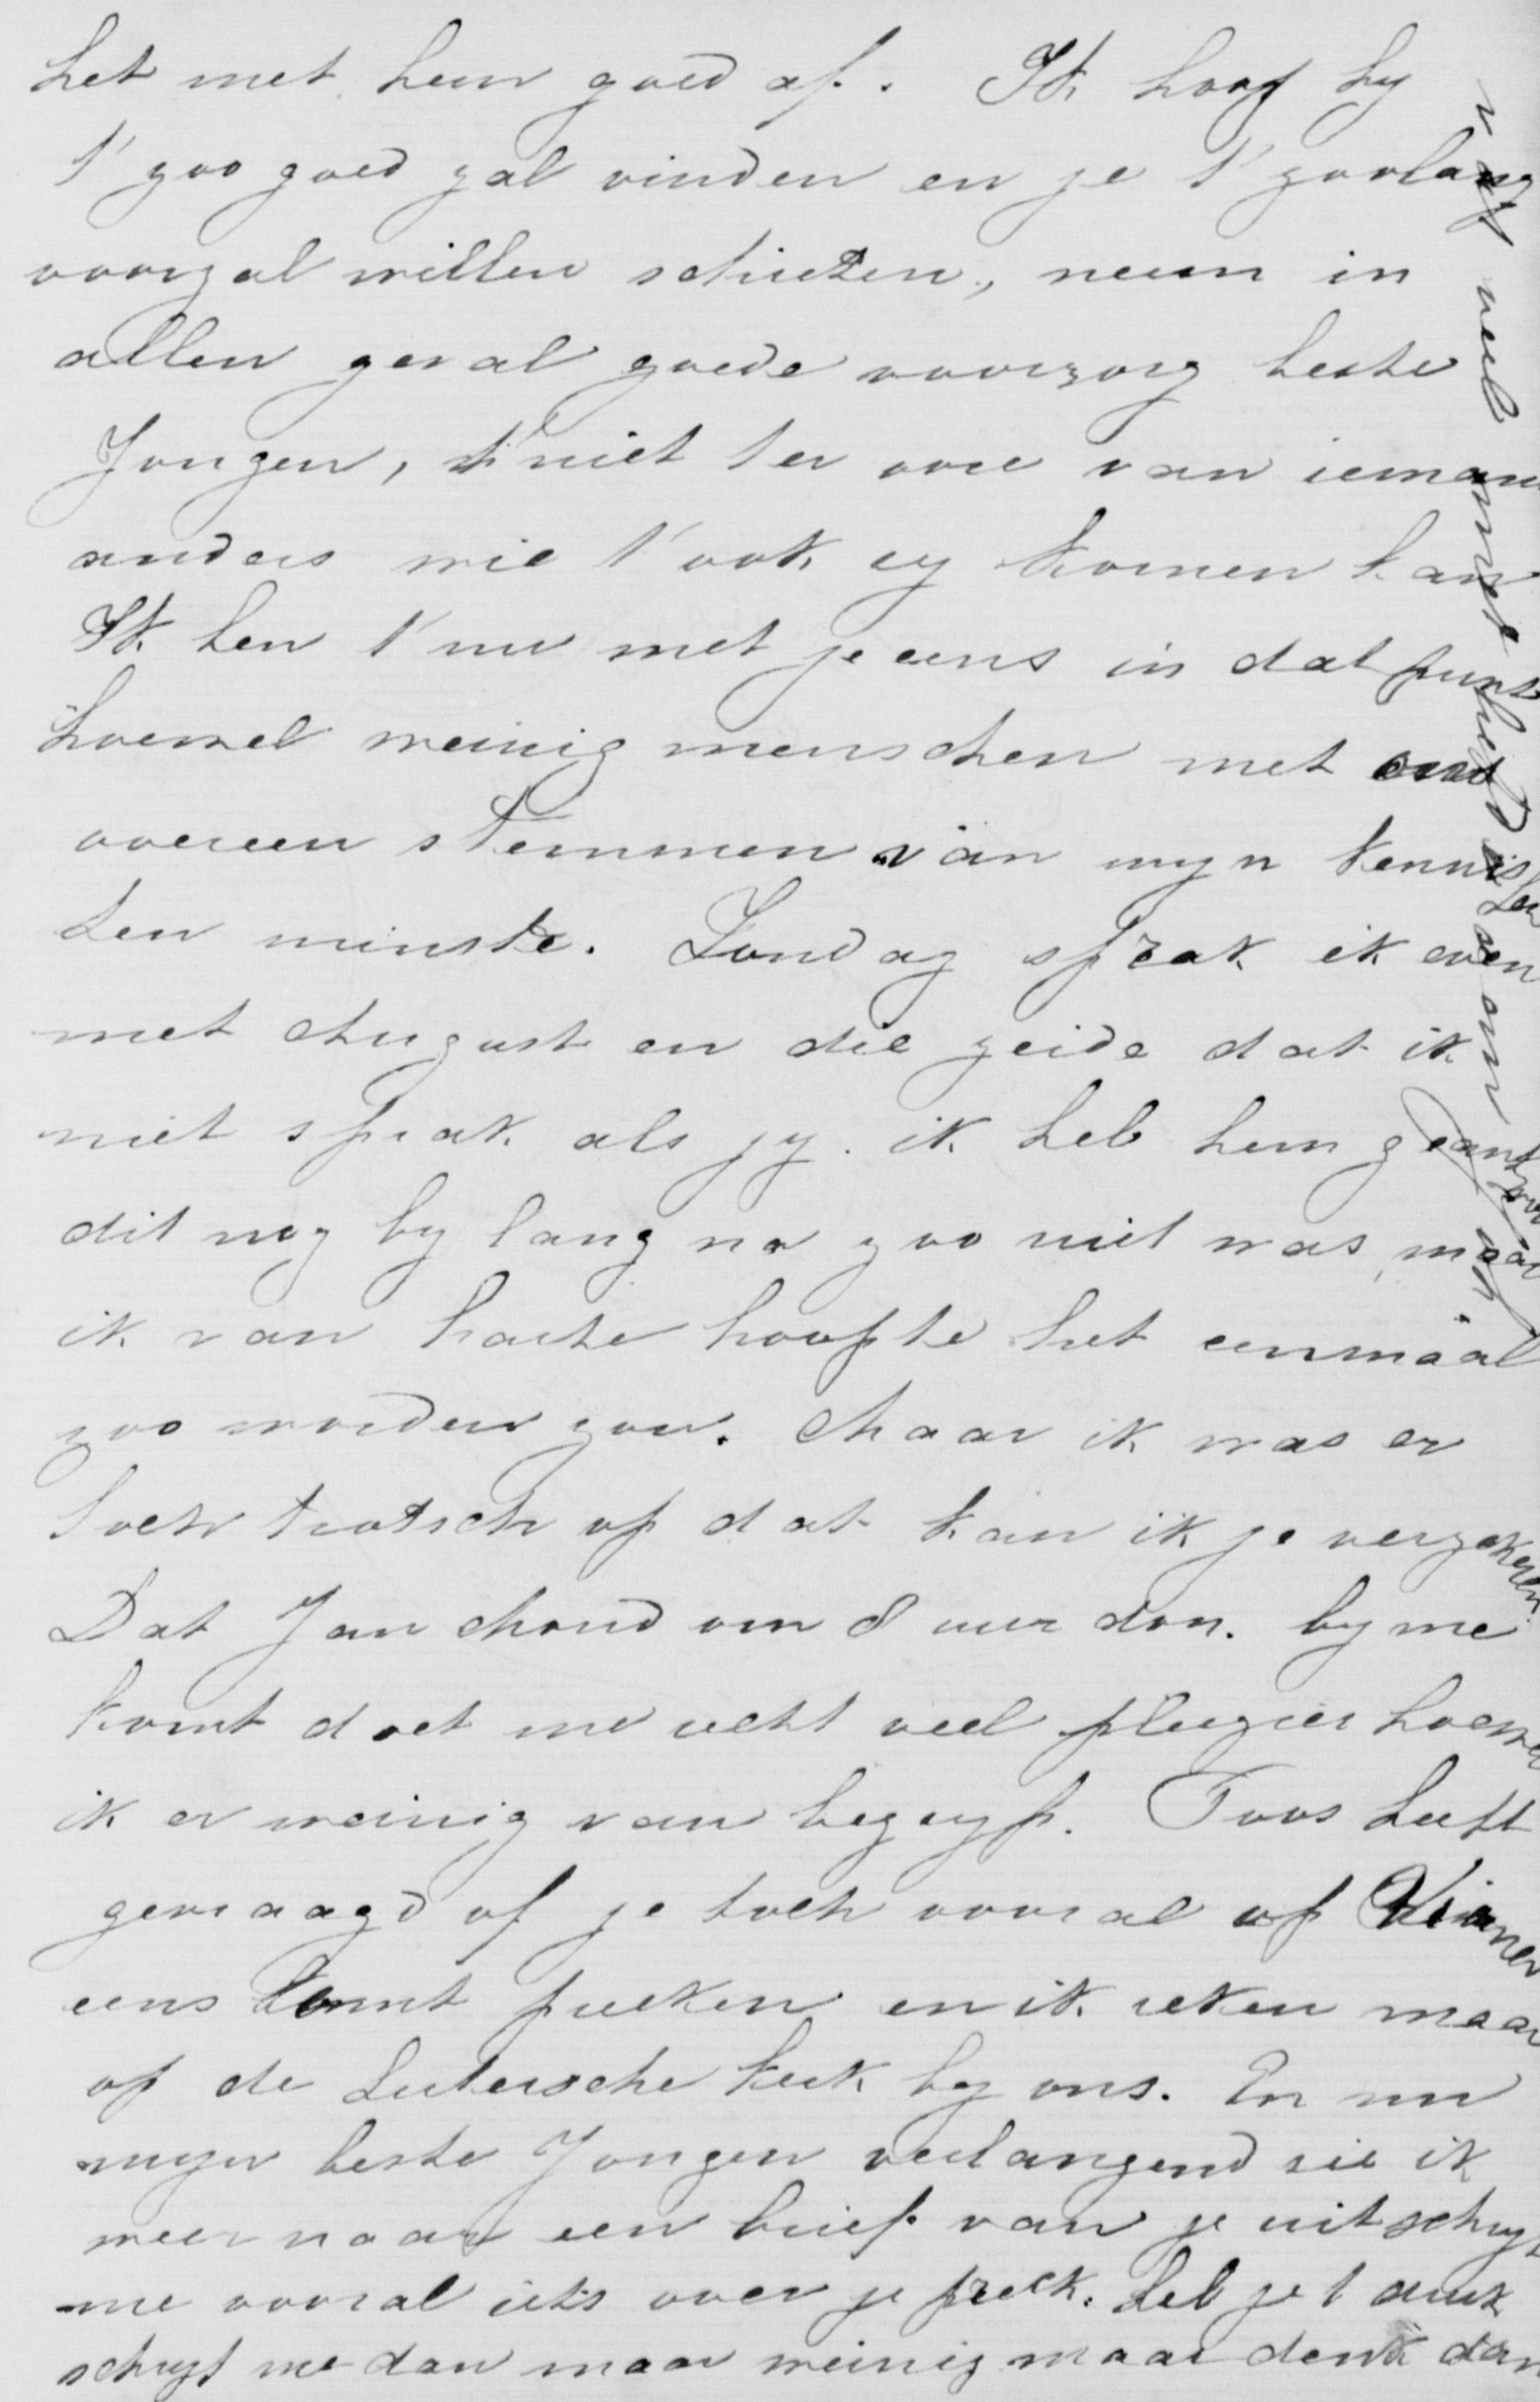 het met hem goed af. Ik hoop hy
t' zoo goed zal vinden en je t' zoolang
voorzal willen schieten, neem in
allen geval goede voorzorg beste
Jongen, t' niet ter oore van ieman
anders wie t' ook zy komen kan
Ik ben t' nu met je eens in dat punt
hoewel weinig menschen met ons
overeen stemmen van myn kennissen
ten minste. Zondag sprak ik even
met August en die zeide dat ik
niet sprak als jy. ik heb hem geantwoo
dit nog by lang na zoo niet was, maar
ik van harte hoopte het eenmaal
zoo worden zou. Maar ik was er
toch trotsch op dat kan ik je verzekeren.
Dat Jan Mond om 8 uur don. by me
komt doet me echt veel plezier hoewel
ik er weinig van begryp. Toos heeft
gevraagd of je toch vooral op
eens komt preeken en ik reken maar
op de Lutersche kerk by ons. En nu
myn beste Jongen verlangend zie ik
weer naar een brief van je uit schryf
me vooral iets over je preek. Heb je t druk
schryf me dan maar weinig maar denk dan
nog veel